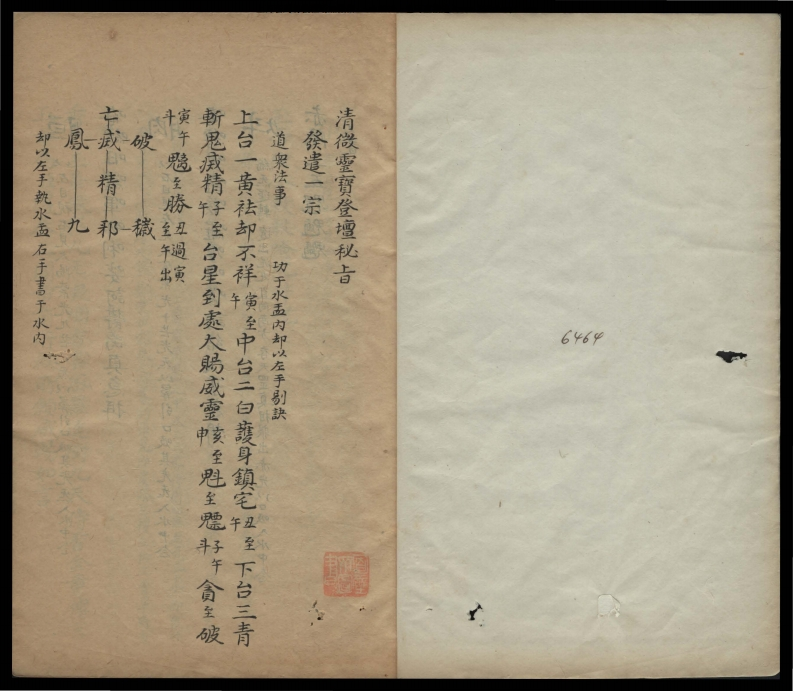 清微靈寶登壇秘旨
發遣一宗
道衆法事 功于水盂内却以左手剔訣
上台一黃祛却不祥 寅至午 中台二白護身鎮宅 丑至午 下台三青
斬鬼滅精 子至午 台星到處大賜威靈 亥至申 魁至 子午斗 貪至破
寅午斗 至勝 丑過寅至午出
破 穢
亡滅精邪
鳳 九
却以左手執水盂右手書于水内
6464